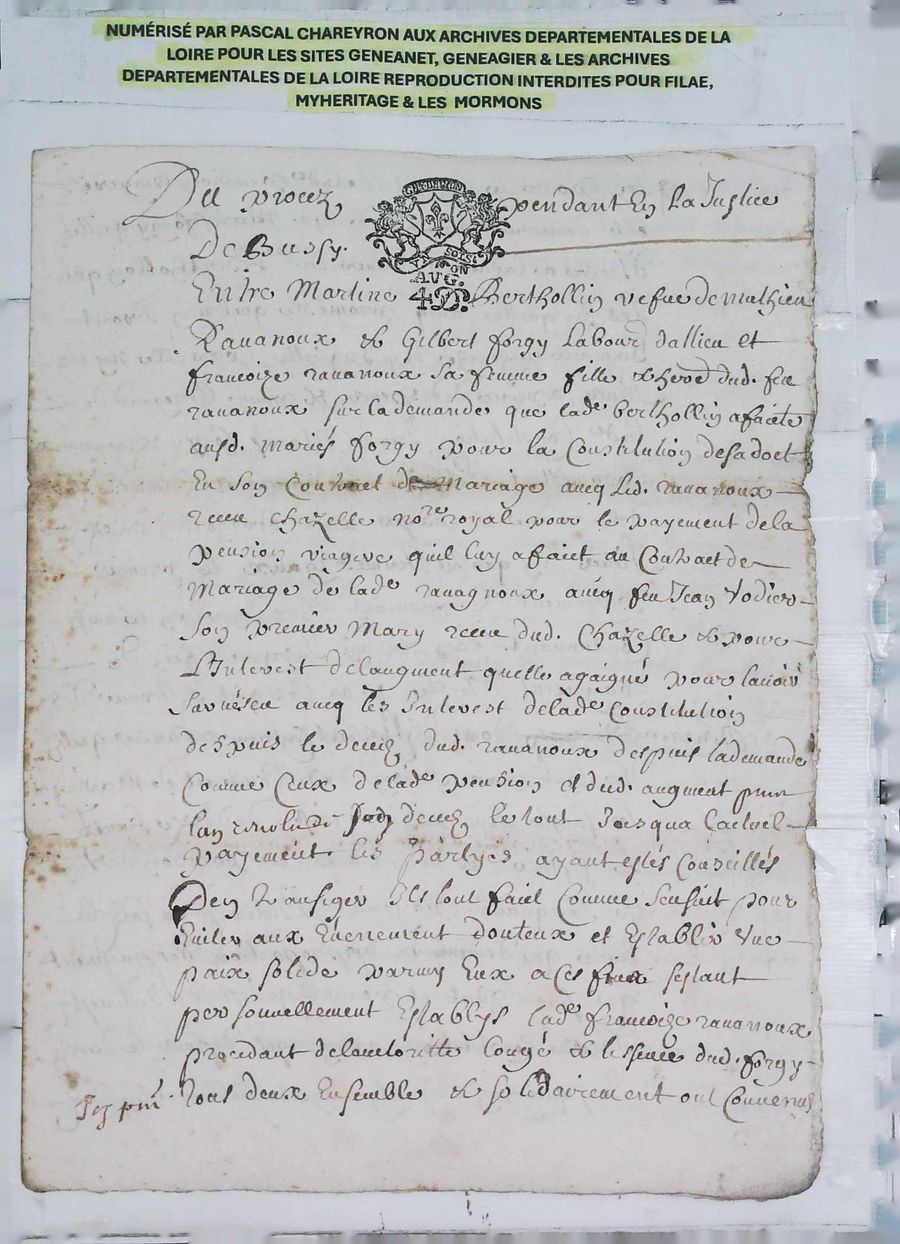 NUMÉRISÉ PAR PASCAL CHAREYRON AUX ARCHIVES DEPARTEMENTALES DE LA
LOIRE POUR LES SITES GENEANET, GENEAGIER & LES ARCHIVES
DEPARTEMENTALES DE LA LOIRE REPRODUCTION INTERDITES POUR FILAE,
MYHERITAGE & LES MORMONS
Du procez pendant En La Justice
De Bussy.
AVG.
4D.
Entre Martine Berthollin vefue de mathieu
Rauanoux & Gilbert forgy Labour dallieu et
francoize rauanoux sa femme fille & hered dud. feu
rauanoux sur la demande que lade berthollin a faicte
ausd. mariés forgy pour la Constitution de sa dot
En son Contract de Mariage aueq led. rauanoux
receu chazelle nore royal pour le payement de la
pension viagere quil luy a faict au Contract de
Mariage de lade rauagnoux aueq feu Jean Vodier
son premier Mary receu dud. Chazelle & pour
L'Interest de laugment quelle a gaigné pour lauoir
suruescu aueq les Interest de lade Constitution
despuis le decez dud. rauanoux despuis la demande
Comme Ceux de lade pension et dud. augment
lan decez le tout Jusqua lactuel
payement les partyes ayant estés Conseillés
Den transiger Ils lont faict Comme sensuit pour
Euiter aux Euennement douteux et Establir Vne
paix solide parmy Eux a Ces fins sestant
personnellement Establys lade francoize rauanoux
procedant de lauctoritte Congé & dud. forgy
Tous deux Ensemble & solidairement ont Conuenus